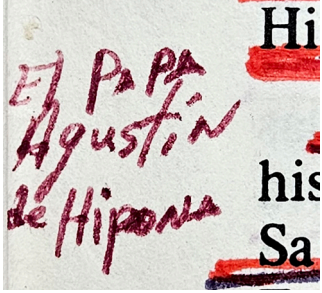 El PaPa
Agustín
de Hipona
Hi
his
Sa